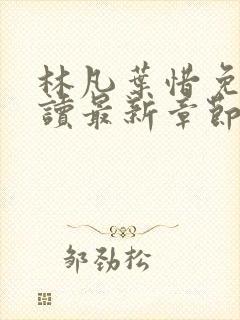 林凡葉惜免
讀最新章節
邹劲松